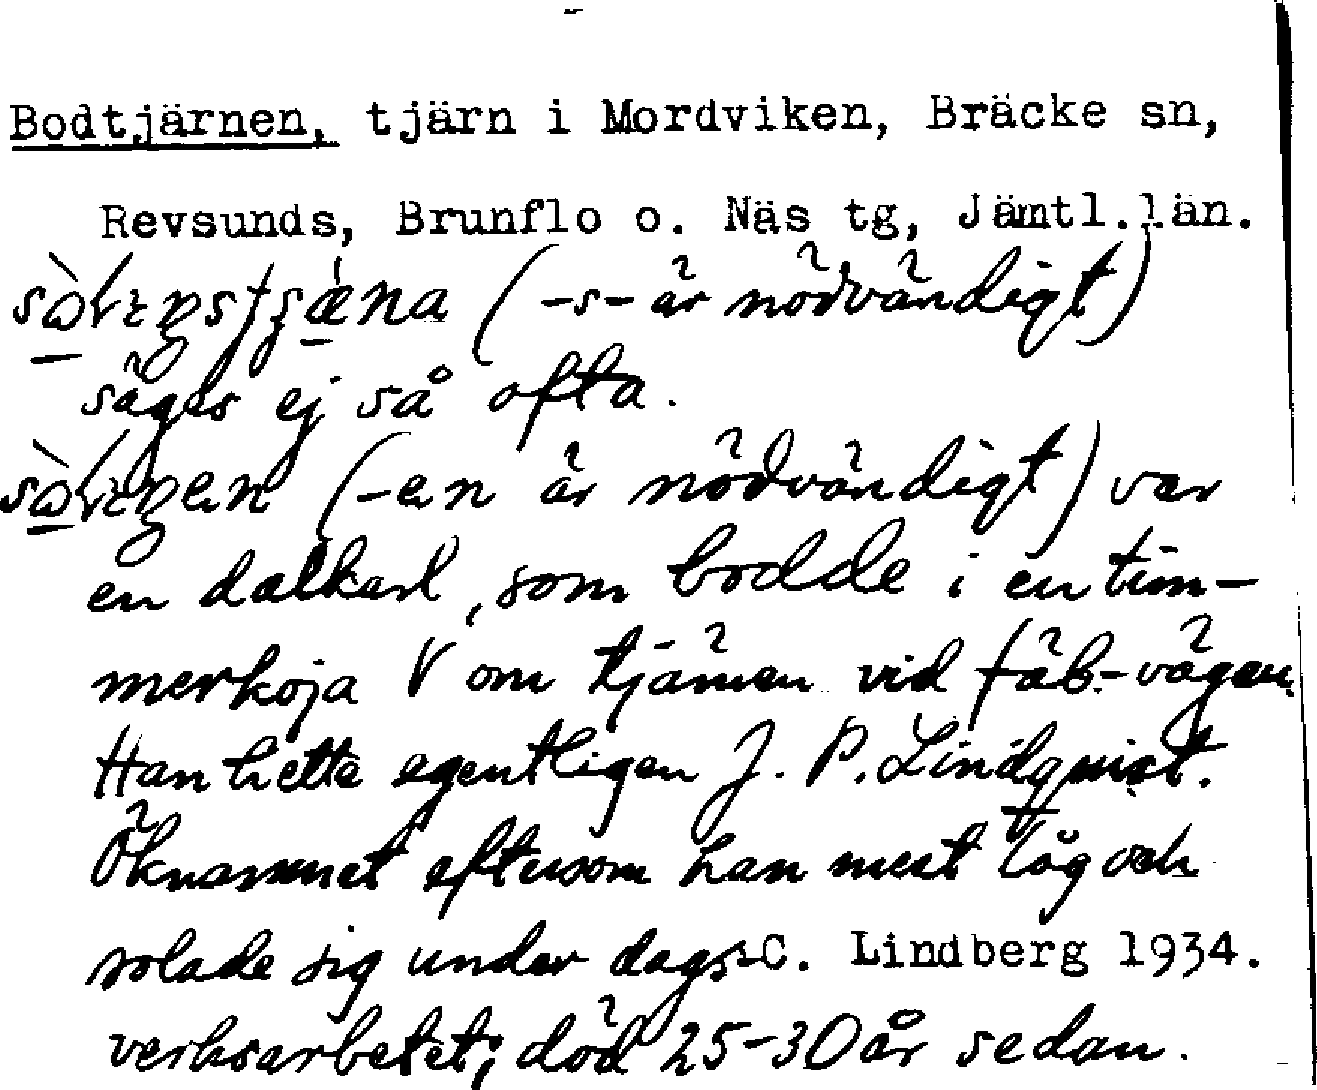 Bodtjärnen, tjärn i Mordviken, Bräcke sn,
Revsunds, Brunflo o. Näs tg, Jämtl.län.
(-s- är nödvändigt)
säges ej så ofta.
(-en är nödvändigt) var
en dalkarl, som bodde i en tim-
merkoja V om tjärnen vid fäb.-vägen.
Han hette egentligen J. P. Lindqvist.
Öknamnet eftersom han mest låg och
solade sig under dags- C. Lindberg 1934.
verksarbetet; död 25-30 år sedan.